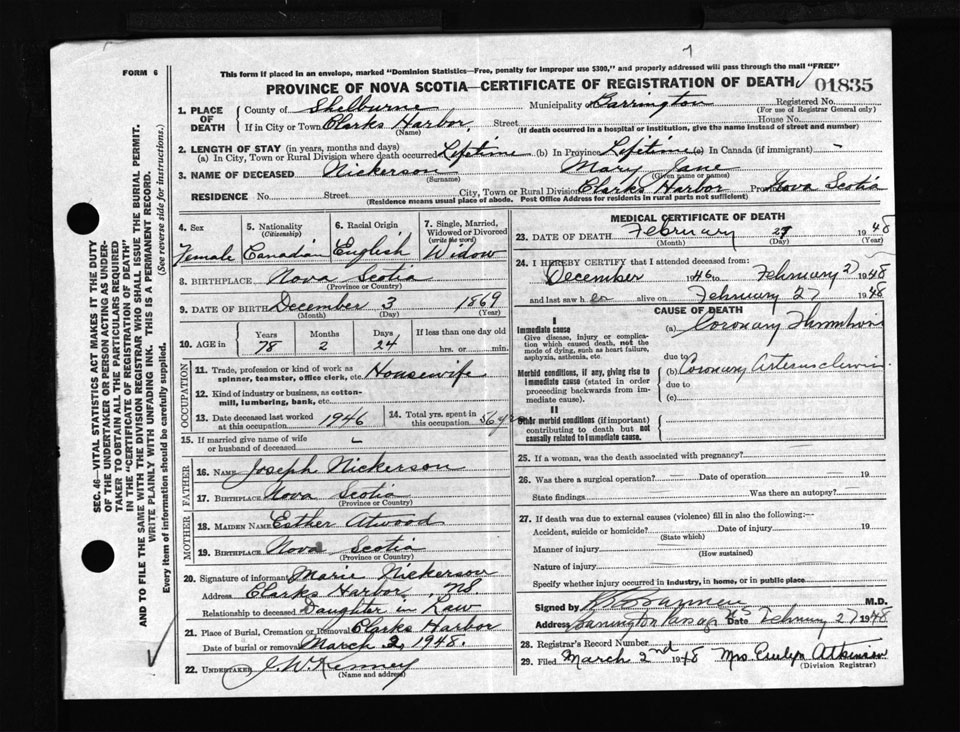 FORM 6
This form if placed in an envelope, marked "Dominion Statistics—Free, penalty for improper use $300," and properly addressed will pass through the mail "FREE"
PROVINCE OF NOVA SCOTIA—CERTIFICATE OF REGISTRATION OF DEATH
01835
1. PLACE OF DEATH
County of Shelburne Municipality Barrington Registered No.
(For use of Registrar General only)
If in City or Town Clarks Harbor Street House No.
(Name) (If death occurred in a hospital or institution, give the name instead of street and number)
2. LENGTH OF STAY (in years, months and days)
(a) In City, Town or Rural Division where death occurred Lifetime (b) In Province Lifetime (c) In Canada (if immigrant) -
3. NAME OF DECEASED Nickerson Mary Jane
(Surname) (Given name or names)
RESIDENCE No. Street City, Town or Rural Division Clarks Harbor Province Nova Scotia
(Residence means usual place of abode. Post Office Address for residents in rural parts not sufficient)
4. Sex 5. Nationality (Citizenship) 6. Racial Origin 7. Single, Married, Widowed or Divorced (write the word)
Female Canadian English Widow
8. BIRTHPLACE Nova Scotia
(Province or Country)
9. DATE OF BIRTH December 3 1869
(Month) (Day) (Year)
10. AGE in Years Months Days If less than one day old
78 2 24 hrs. or min.
OCCUPATION
11. Trade, profession or kind of work as spinner, teamster, office clerk, etc. Housewife
12. Kind of industry or business, as cotton-mill, lumbering, bank, etc.
13. Date deceased last worked at this occupation 1946 14. Total yrs. spent in this occupation 56 yrs
15. If married give name of wife or husband of deceased -
FATHER
16. NAME Joseph Nickerson
17. BIRTHPLACE Nova Scotia
(Province or Country)
MOTHER
18. MAIDEN NAME Esther Atwood
19. BIRTHPLACE Nova Scotia
(Province or Country)
20. Signature of informant Marie Nickerson
Address Clarks Harbor, NS.
Relationship to deceased Daughter in Law
21. Place of Burial, Cremation or Removal Clarks Harbor
Date of burial or removal March 2, 1948.
22. UNDERTAKER J. W. Kenney
(Name and address)
MEDICAL CERTIFICATE OF DEATH
23. DATE OF DEATH February 27 1948
(Month) (Day) (Year)
24. I HEREBY CERTIFY that I attended deceased from:
December 1946 to February 27 1948
and last saw her alive on February 27 1948
CAUSE OF DEATH
I
Immediate cause
Give disease, injury or complication which caused death, not the mode of dying, such as heart failure, asphyxia, asthenia, etc.
(a) Coronary Thrombosis
due to
Morbid conditions, if any, giving rise to immediate cause (stated in order proceeding backwards from immediate cause).
(b) Coronary Arteriosclerosis
due to
(c)
II
Other morbid conditions (if important) contributing to death but not causally related to immediate cause.
25. If a woman, was the death associated with pregnancy?
26. Was there a surgical operation? Date of operation 19
State findings Was there an autopsy?
27. If death was due to external causes (violence) fill in also the following:—
Accident, suicide or homicide? Date of injury 19
(State which)
Manner of injury
(How sustained)
Nature of injury
Specify whether injury occurred in industry, in home, or in public place
Signed by M.D.
Address Barrington Passage NS Date February 27 1948
28. Registrar's Record Number
29. Filed March 2nd 1948 Mrs Evelyn Atkinson
(Division Registrar)
SEC. 46—VITAL STATISTICS ACT MAKES IT THE DUTY
OF THE UNDERTAKER OR PERSON ACTING AS UNDER-
TAKER TO OBTAIN ALL THE PARTICULARS REQUIRED
IN THE "CERTIFICATE OF REGISTRATION OF DEATH"
AND TO FILE THE SAME WITH THE DIVISION REGISTRAR WHO SHALL ISSUE THE BURIAL PERMIT.
WRITE PLAINLY WITH UNFADING INK. THIS IS A PERMANENT RECORD.
Every item of information should be carefully supplied. (See reverse side for instructions.)